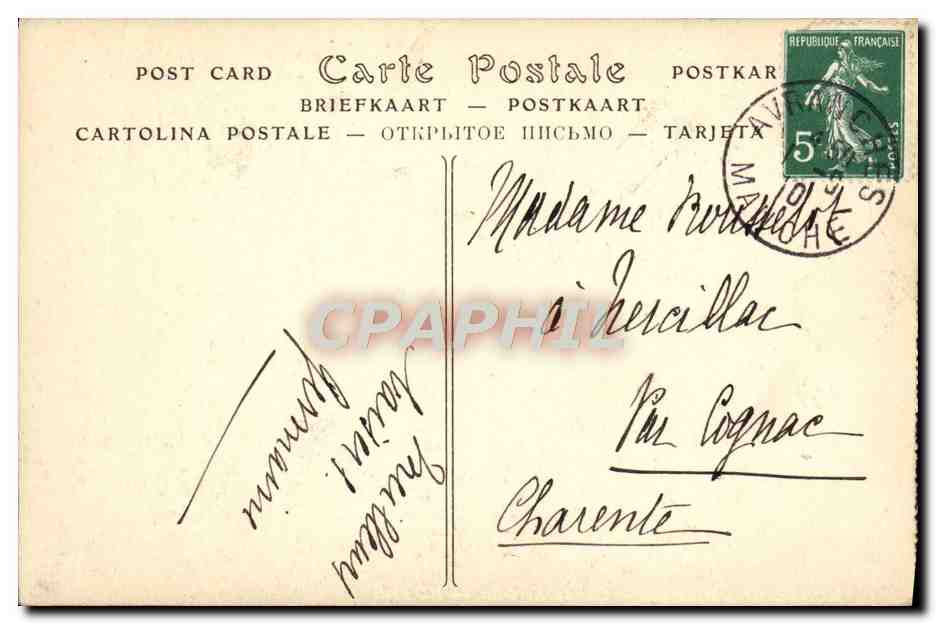 POST CARD Carte Postale POSTKAR
BRIEFKAART — POSTKAART
CARTOLINA POSTALE — ОТКРЫТОЕ ПИСЬМО — TARJETA
REPUBLIQUE FRANÇAISE
5
POSTES
AVRANCHES
MANCHE
Madame Rousselot
à Nercillac
Par Cognac
Charente
Meilleurs
baisers!
Germaine
CPAPHIL